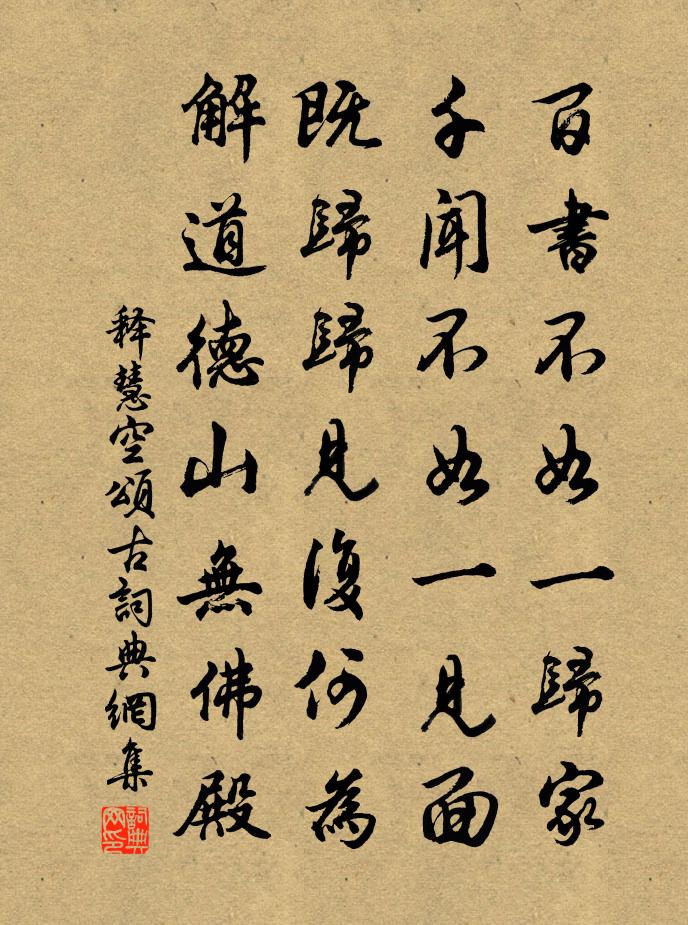 百書不如一歸家
千聞不如一見面
既歸歸見復何為
解道德山無佛殿
释慧空頌古詞典網集
詞典网印